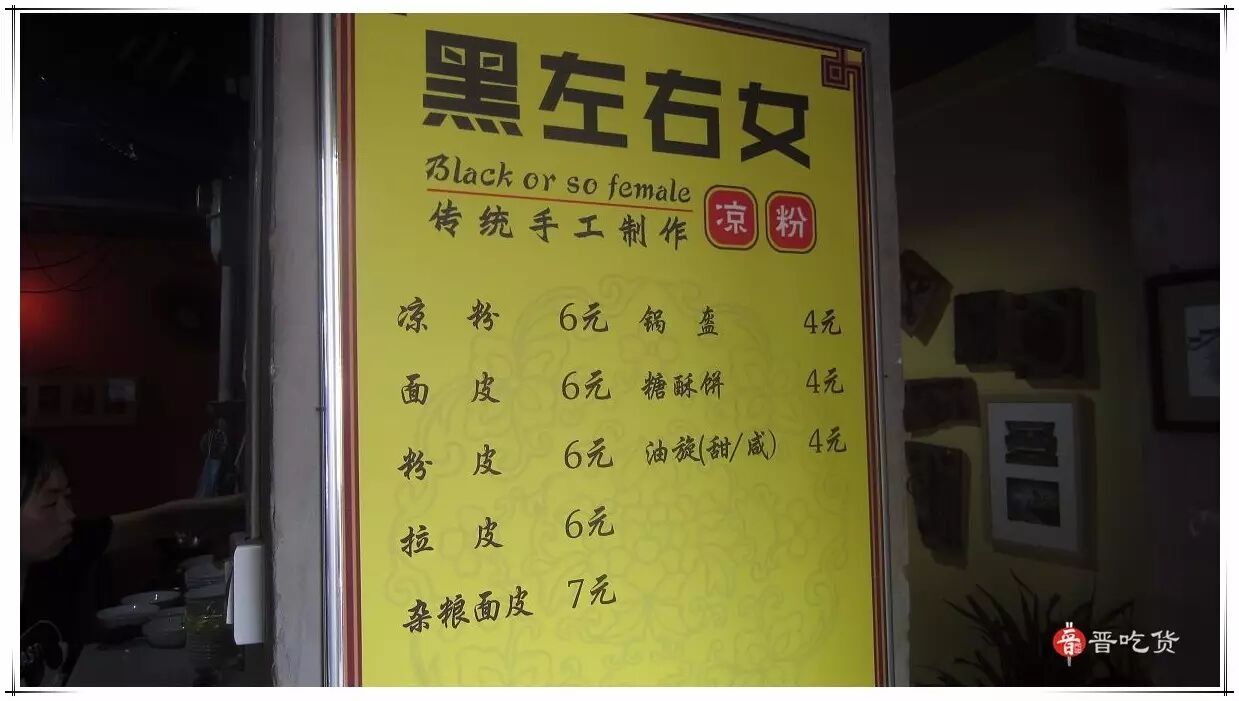 黑左右女
Black or so female
传统手工制作 凉粉
凉粉 6元 锅盔 4元
面皮 6元 糖酥饼 4元
粉皮 6元 油旋(甜/咸) 4元
拉皮 6元
杂粮面皮 7元
晋 晋吃货